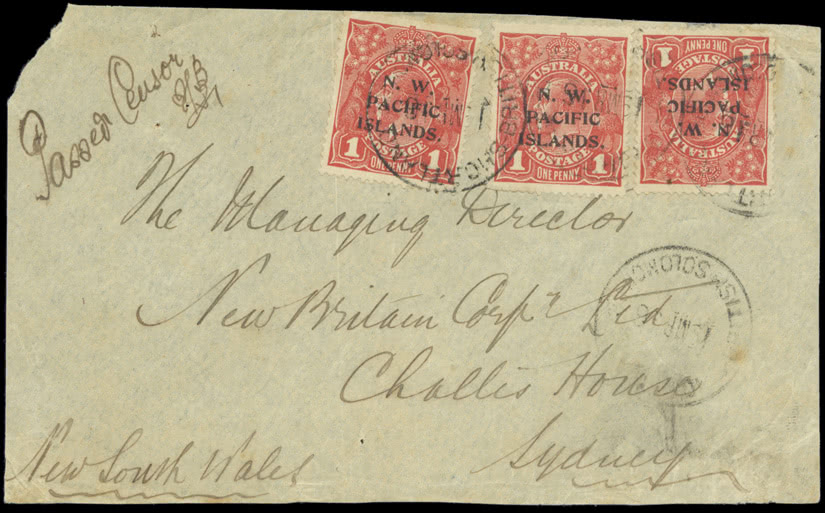 Passed Censor
AUSTRALIA
N. W.
PACIFIC
ISLANDS.
POSTAGE
1 ONE PENNY 1
AUSTRALIA
N. W.
PACIFIC
ISLANDS.
POSTAGE
1 ONE PENNY 1
AUSTRALIA
N. W.
PACIFIC
ISLANDS.
POSTAGE
1 ONE PENNY 1
The Managing Director
New Britain Corpn Ltd
Challis House
Sydney
New South Wales